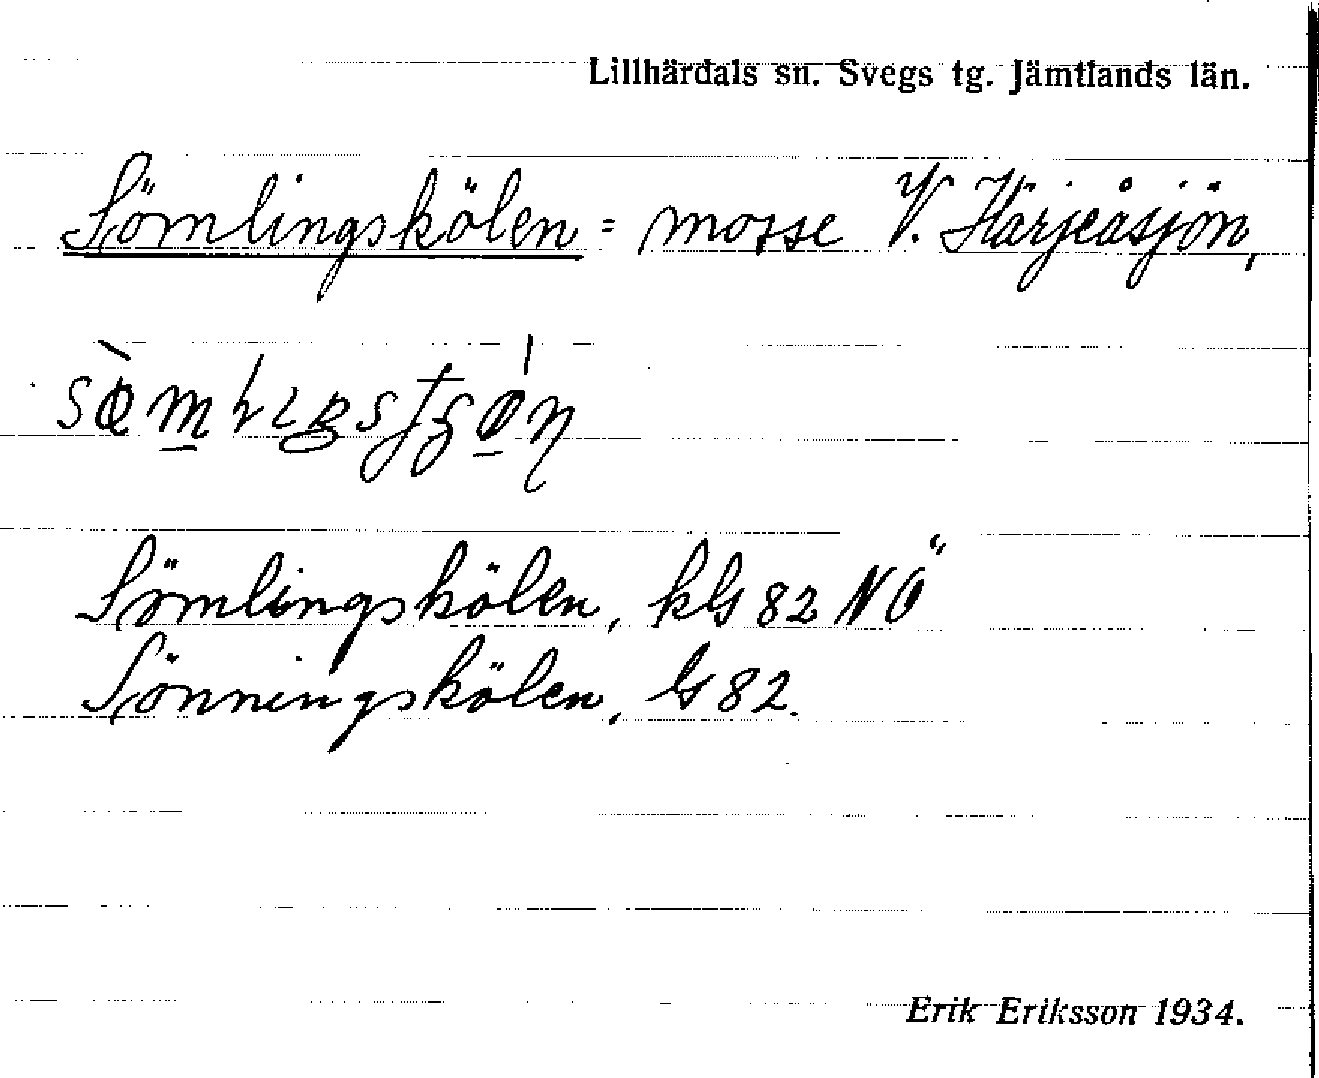 Lillhärdals sn. Svegs tg. Jämtlands län.
Sömlingskölen = mosse V. Härjeåsjön,
Sömlingskölen, kG 82 NÖ
Sönningskölen, G 82.
Erik Eriksson 1934.